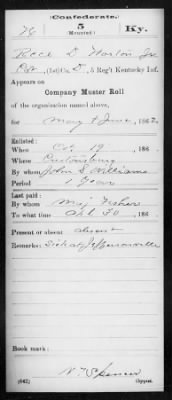 (Confederate.)
N 5 Ky.
(Mounted.)
Rece D Norton Jr
Pvt, (1st) Co. D, 5 Reg't Kentucky Inf.
Appears on
Company Muster Roll
of the organization named above,
for May & June, 1862.
Enlisted:
When Oct 19, 186 .
Where Prestonsburg
By whom John S Williams
Period 1 year
Last paid:
By whom Maj Fisher
To what time Apl 30, 186 .
Present or absent absent
Remarks: Sick at Jeffersonville
Book mark:
(642) Copyist.